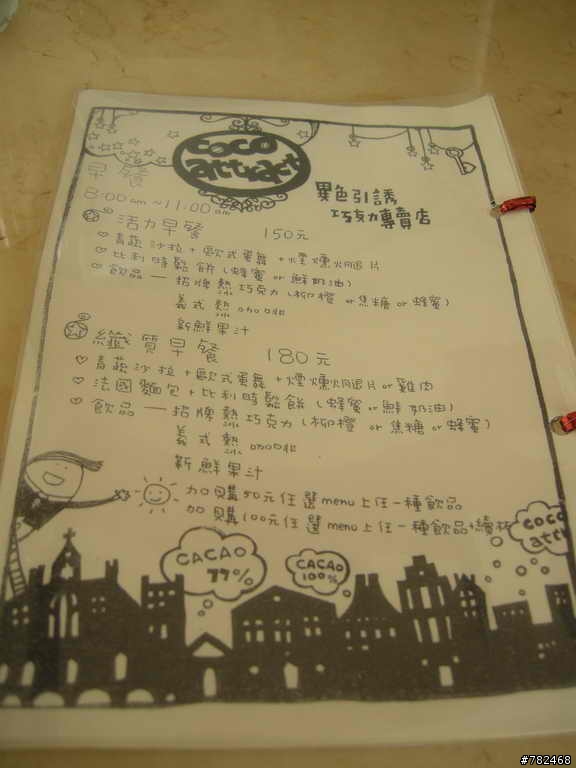 coco
attract
異色引誘
巧克力專賣店
早餐
8:00am~11:00am
活力早餐 150元
青蔬沙拉+歐式蛋捲+煙燻火腿片
比利時鬆餅(蜂蜜or鮮奶油)
飲品 — 招牌熱巧克力(柳橙or焦糖or蜂蜜)
冰
義式熱咖啡
冰
新鮮果汁
纖質早餐 180元
青蔬沙拉+歐式蛋捲+煙燻火腿片or雞肉
法國麵包+比利時鬆餅(蜂蜜or鮮奶油)
飲品 — 招牌熱巧克力(柳橙or焦糖or蜂蜜)
冰
義式熱咖啡
冰
新鮮果汁
加購50元任選menu上任一種飲品
加購100元任選menu上任一種飲品+續杯
coco
attr
CACAO
77%
CACAO
100%
#782468